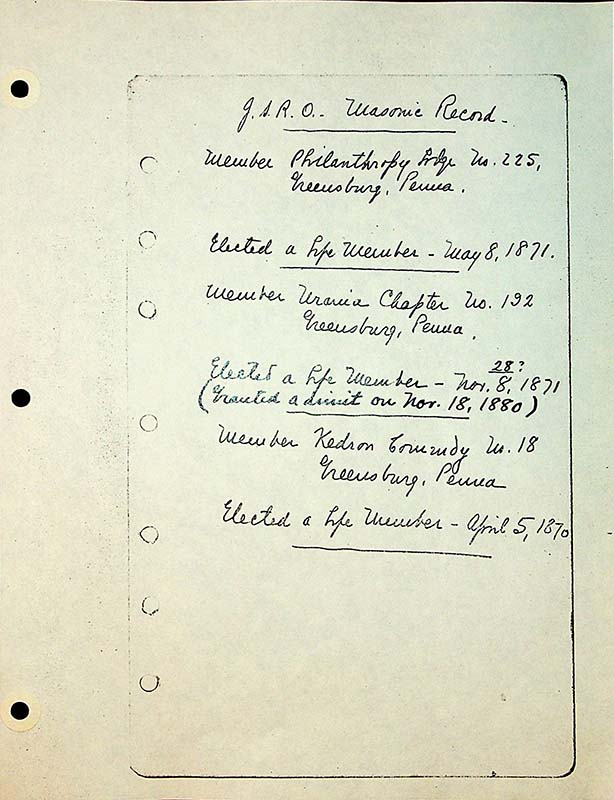 J.S.R.O. - Masonic Record -
Member Philanthropy Lodge No. 225,
Greensburg, Penna.
Elected a Life Member - May 8, 1871.
Member Urania Chapter No. 192
Greensburg, Penna.
28?
Elected a Life Member - Nov. 8, 1871
(Granted a dimit on Nov. 18, 1880)
Member Kedron Commdy No. 18
Greensburg, Penna
Elected a Life Member - April 5, 1870